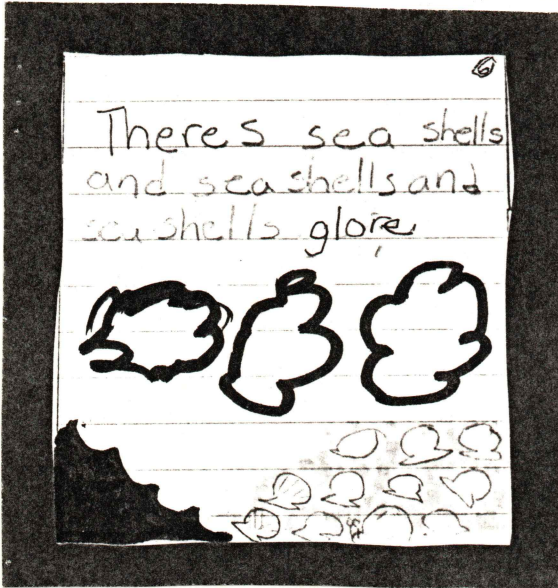 6
Theres sea shells
and sea shells and
sea shells glore